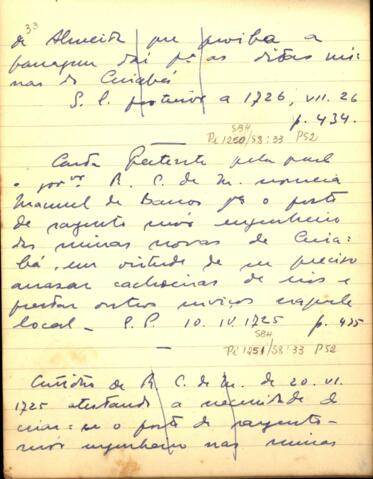 33
de Almeida que proiba a
passagem daí pª as ditas mi-
nas do Cuiabá
S. P. posterior a 1726, VII. 26
p. 434.
SBH
Pi 1250/58:33 P52
Carta Patente pela qual
o govor R. C. de M. nomeia
Manuel de Barros pª o posto
de sargento mór engenheiro
das minas novas de Cuia-
bá, em virtude de ser preciso
arrasar cachoeiras de rios e
prestar outros serviços naquele
local - S. P. 10. IV. 1725 p. 435
SBH
Pi 1251/58:33 P52
Certidão de R. C. de M. de 20. VI.
1725 atestando a necessidade de
criar-se o posto de sargento-
mór engenheiro nas minas